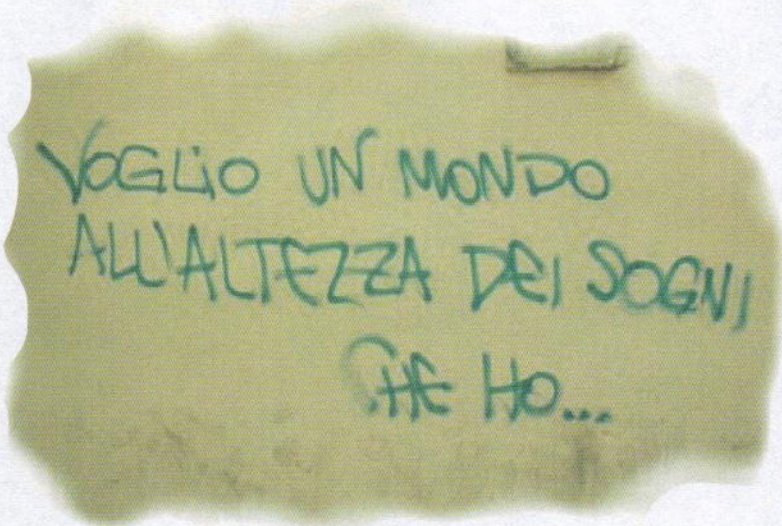 VOGLIO UN MONDO
ALL'ALTEZZA DEI SOGNI
CHE HO...